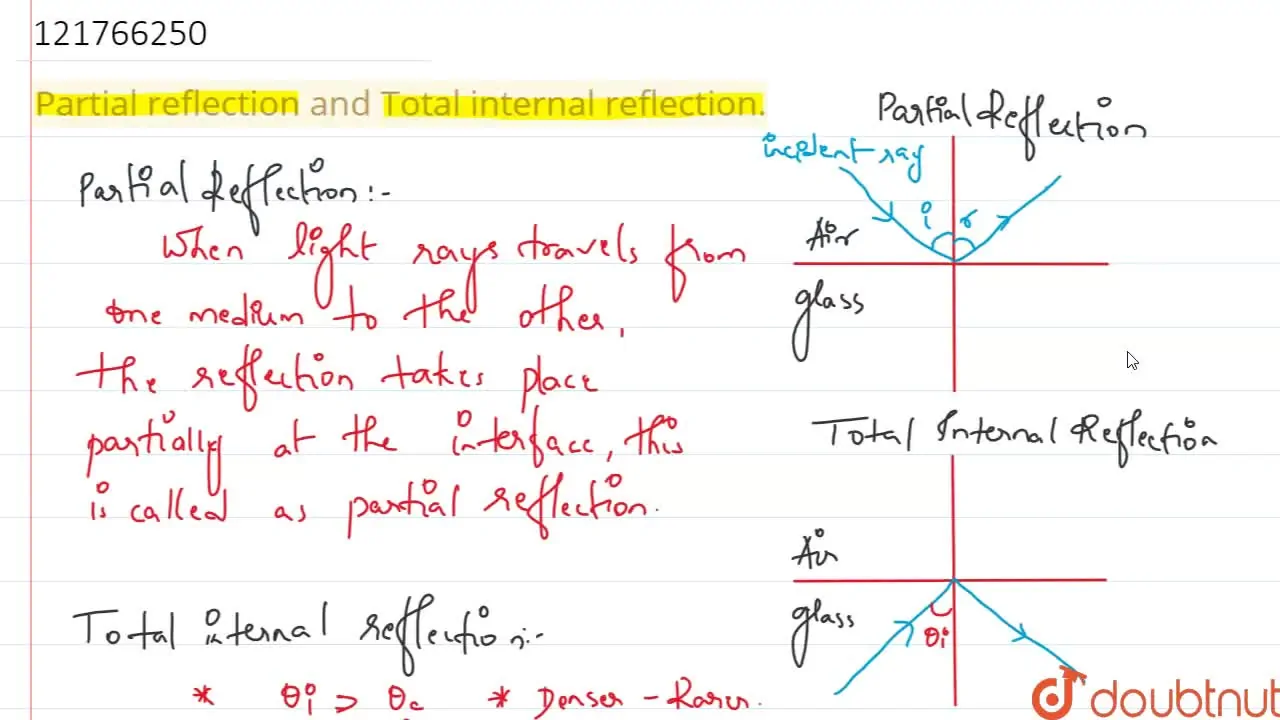 121766250
Partial reflection and Total internal reflection.
Partial Reflection:-
When light rays travels from
one medium to the other,
the reflection takes place
partially at the interface, this
is called as partial reflection.
Total internal reflection:-
* θi > θc * Denser - Rarer.
Partial Reflection
incident ray
i r
Air
glass
Total Internal Reflection
Air
glass
θi
doubtnut